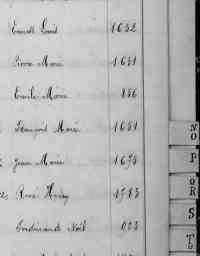 Ernest Louis 1632
Pierre Marie 1631
Emile Marie 836
François Marie 1681
Jean Marie 1693
René Henry 1783
Ferdinand Noël 923
N O
P
Q R
S
T U